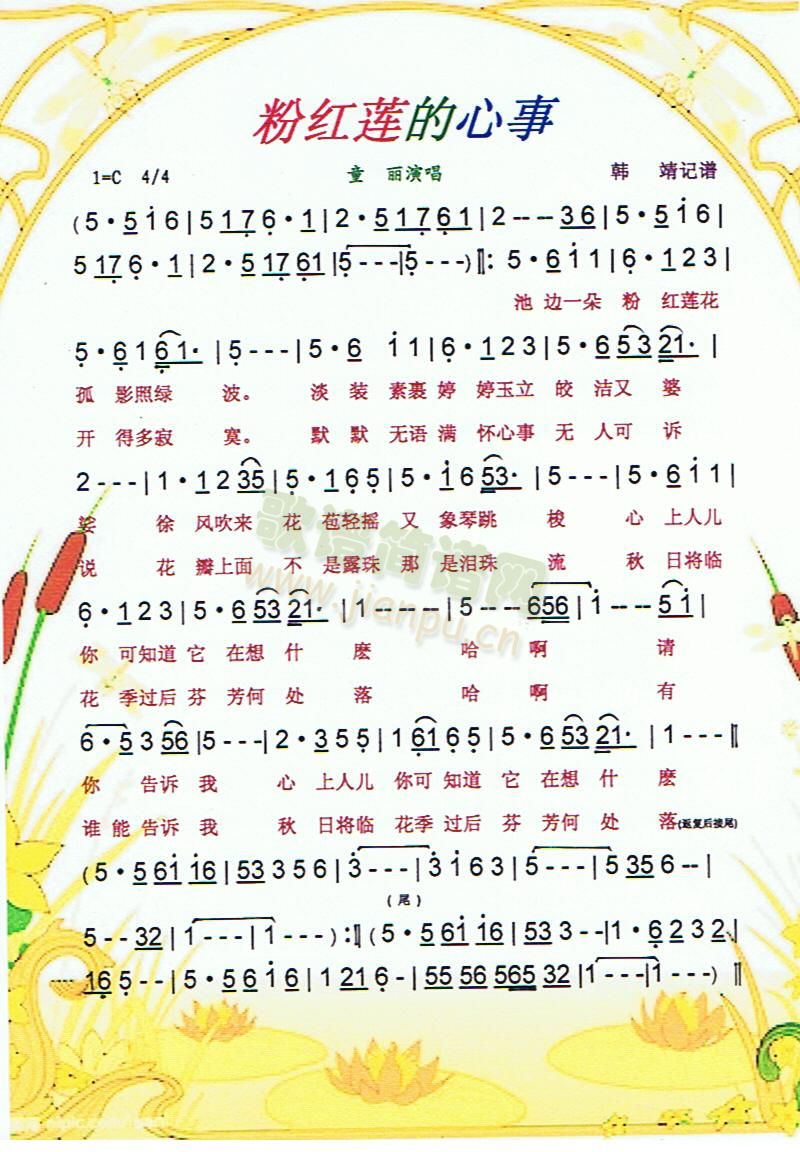 粉红莲的心事
1=C 4/4 童 丽演唱 韩 靖记谱
(5·5i6|5176·1|2·51761|2---36|5·5i6|
5176·1|2·51761|5---|5---)‖:5·6i1|6·123|
池 边一朵 粉 红莲花
5·6161·|5---|5·6 i1|6·123|5·65321·|
孤 影照绿 波。 淡 装 素裹 婷 婷玉立 皎 洁又 婆
开 得多寂 寞。 默 默 无语 满 怀心事 无 人可 诉
2---|1·1235|5·165|5·1653·|5---|5·6i1|
娑 徐 风吹来 花 苞轻摇 又 象琴跳 梭 心 上人儿
说 花 瓣上面 不 是露珠 那 是泪珠 流 秋 日将临
歌谱简谱网
www.jianpu.cn
6·123|5·65321·|1----|5---656|i----5i|
你 可知道 它 在想 什 麽 哈 啊 请
花 季过后 芬 芳何 处 落 哈 啊 有
6·5356|5---|2·355|16165|5·65321·|1---‖
你 告诉 我 心 上人儿 你可 知道 它 在想 什 麽
谁 能 告诉 我 秋 日将临 花季 过后 芬 芳何 处 落(返复后接尾)
(5·561i16|533556|3---|3i63|5---|5356--|
(尾)
5--32|1---|1---):‖(5·561i16|533--|1·6232|
165--|5·56i6|1216-|555656532|1---|1---)‖